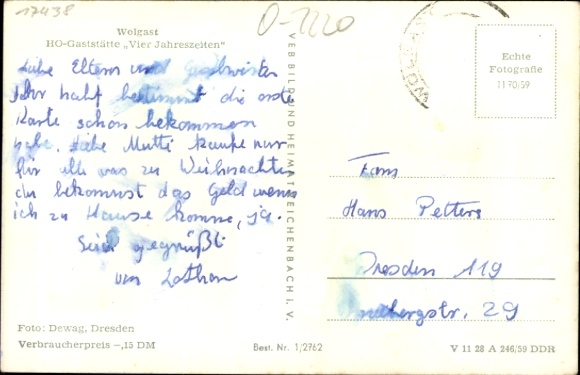 17438
O-1220
Wolgast
HO-Gaststätte „Vier Jahreszeiten“
Liebe Eltern und Geschwister
Ihr habt bestimmt die erste
Karte schon bekommen
habe. Liebe Mutti kaufe nur
für alle was zu Weihnachte
du bekommst das Geld wenn
ich zu Hause komme, ja.
Seid gegrüßt
von Lothar
Foto: Dewag, Dresden
Verbraucherpreis –,15 DM
VEB BILD UND HEIMAT REICHENBACH i. V.
Best. Nr. 1/2762
Echte
Fotografie
1170/59
Fam
Hans Petters
Dresden 119
29
V 11 28 A 246/59 DDR